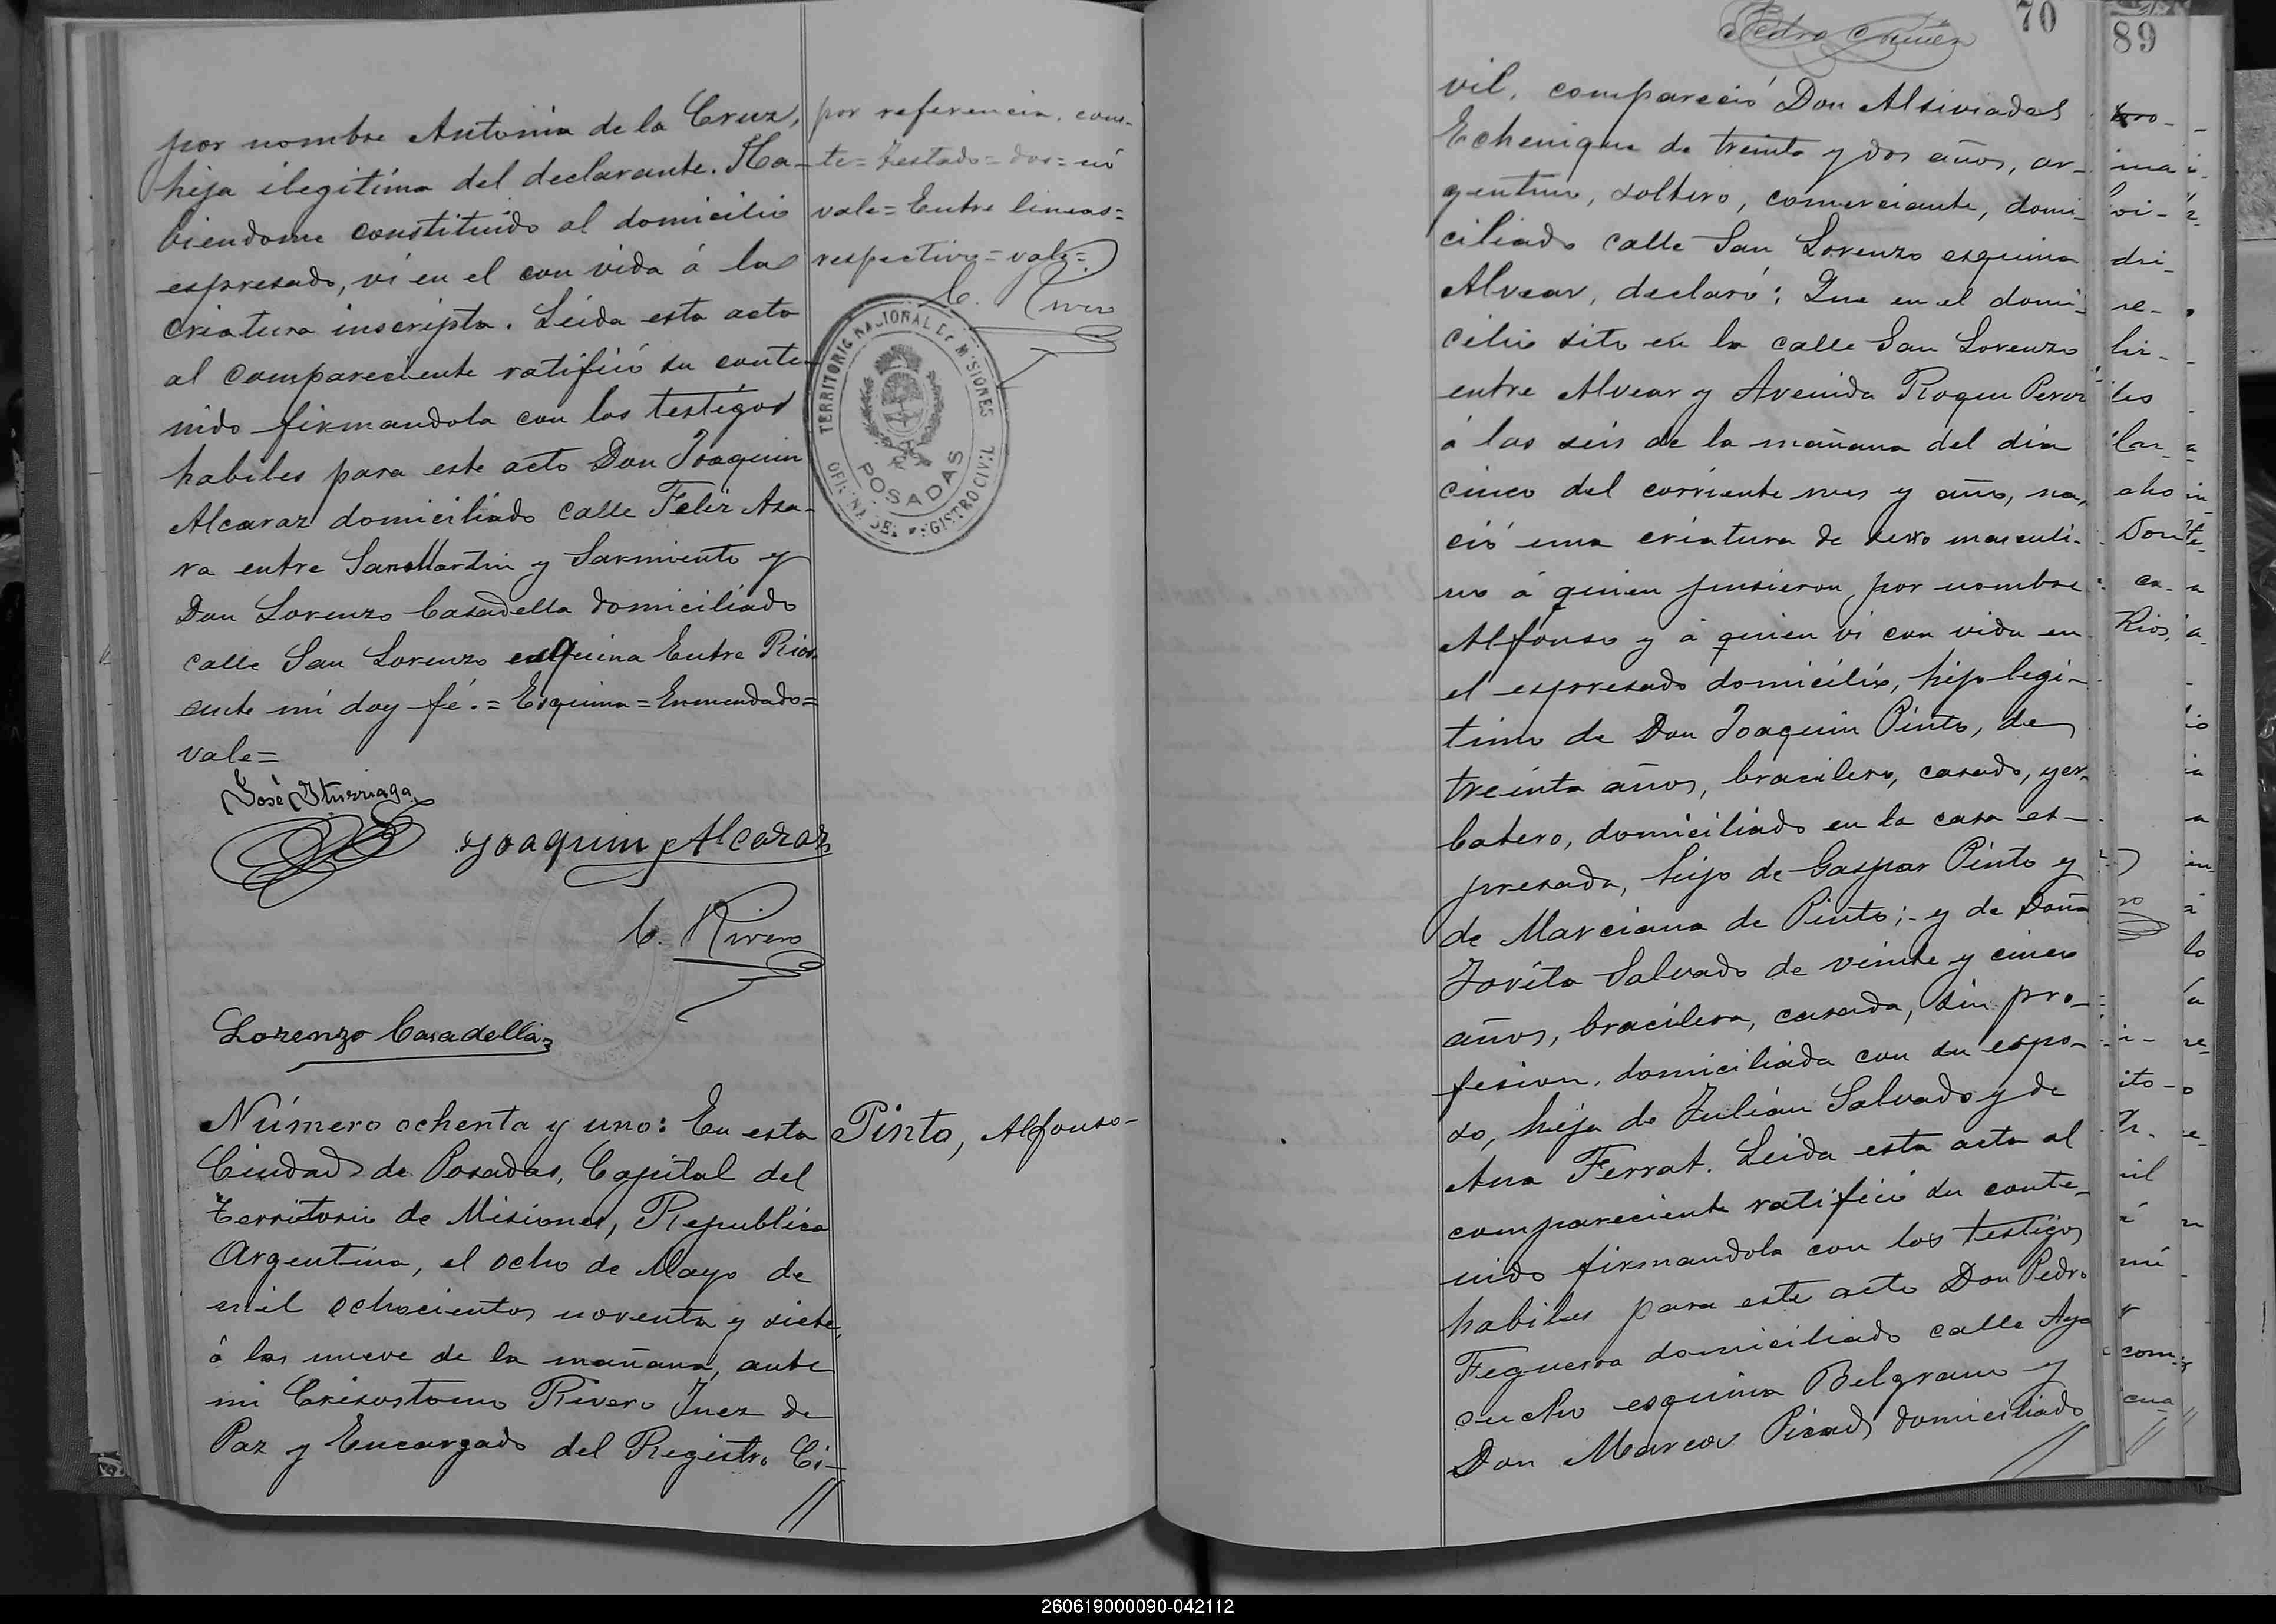 por nombre Antonia de la Cruz,
hija ilegitima del declarante. Ha-
biendome constituido al domicilio
espresado, vi en el con vida á la
criatura inscripta. Leida esta acta
al compareciente ratificó su conte-
nido firmandola con los testigos
habiles para este acto Don Joaquin
Alcaraz domiciliado calle Feliz Aza-
ra entre San Martin y Sarmiento y
Don Lorenzo Casadella domiciliado
calle San Lorenzo esquina Entre Rios
ante mi doy fé.= Esquina = Enmendado =
vale=
José Iturriaga
Joaquin Alcaraz
C. Rivero
Lorenzo Casadella
por referencia. cons-
te= Testado= dos= nó
vale= Entre lineas=
respectivo= vale=
C. Rivero
TERRITORIO NACIONAL DE MISIONES
POSADAS
OFICINA DEL REGISTRO CIVIL
Número ochenta y uno: En esta
Ciudad de Posadas, Capital del
Territorio de Misiones, Republica
Argentina, el ocho de Mayo de
mil ochocientos noventa y siete,
á las nueve de la mañana, ante
mi Crisostomo Rivero Juez de
Paz y Encargado del Registro Ci-
//
Pinto, Alfonso-
70
vil, compareció Don Alsiviades
Echenique de treinta y dos años, ar-
gentino, soltero, comerciante, domi-
ciliado calle San Lorenzo esquina
Alvear, declaró: Que en el domi-
cilio sito en la calle San Lorenzo
entre Alvear y Avenida Roque Perez
á las seis de la mañana del dia
cinco del corriente mes y año, na-
ció una criatura de sexo masculi-
no á quien pusieron por nombre
Alfonso y á quien vi con vida en
el espresado domicilio, hijo legi-
timo de Don Joaquin Pinto, de
treinta años, bracilero, casado, yer-
batero, domiciliado en la casa es-
presada, hijo de Gaspar Pinto y
de Marciana de Pinto;- y de Doña
Jovita Salvado de veinte y cinco
años, bracilera, casada, sin pro-
fesion, domiciliada con su espo-
so, hija de Julián Salvado y de
Ana Ferrat. Leida esta acta al
compareciente ratificó su conte-
nido firmandola con los testigos
habiles para este acto Don Pedro
Feguerra domiciliado calle Aya
cucho esquina Belgrano y
Don Marcos Picad domiciliado
//
89
260619000090-042112